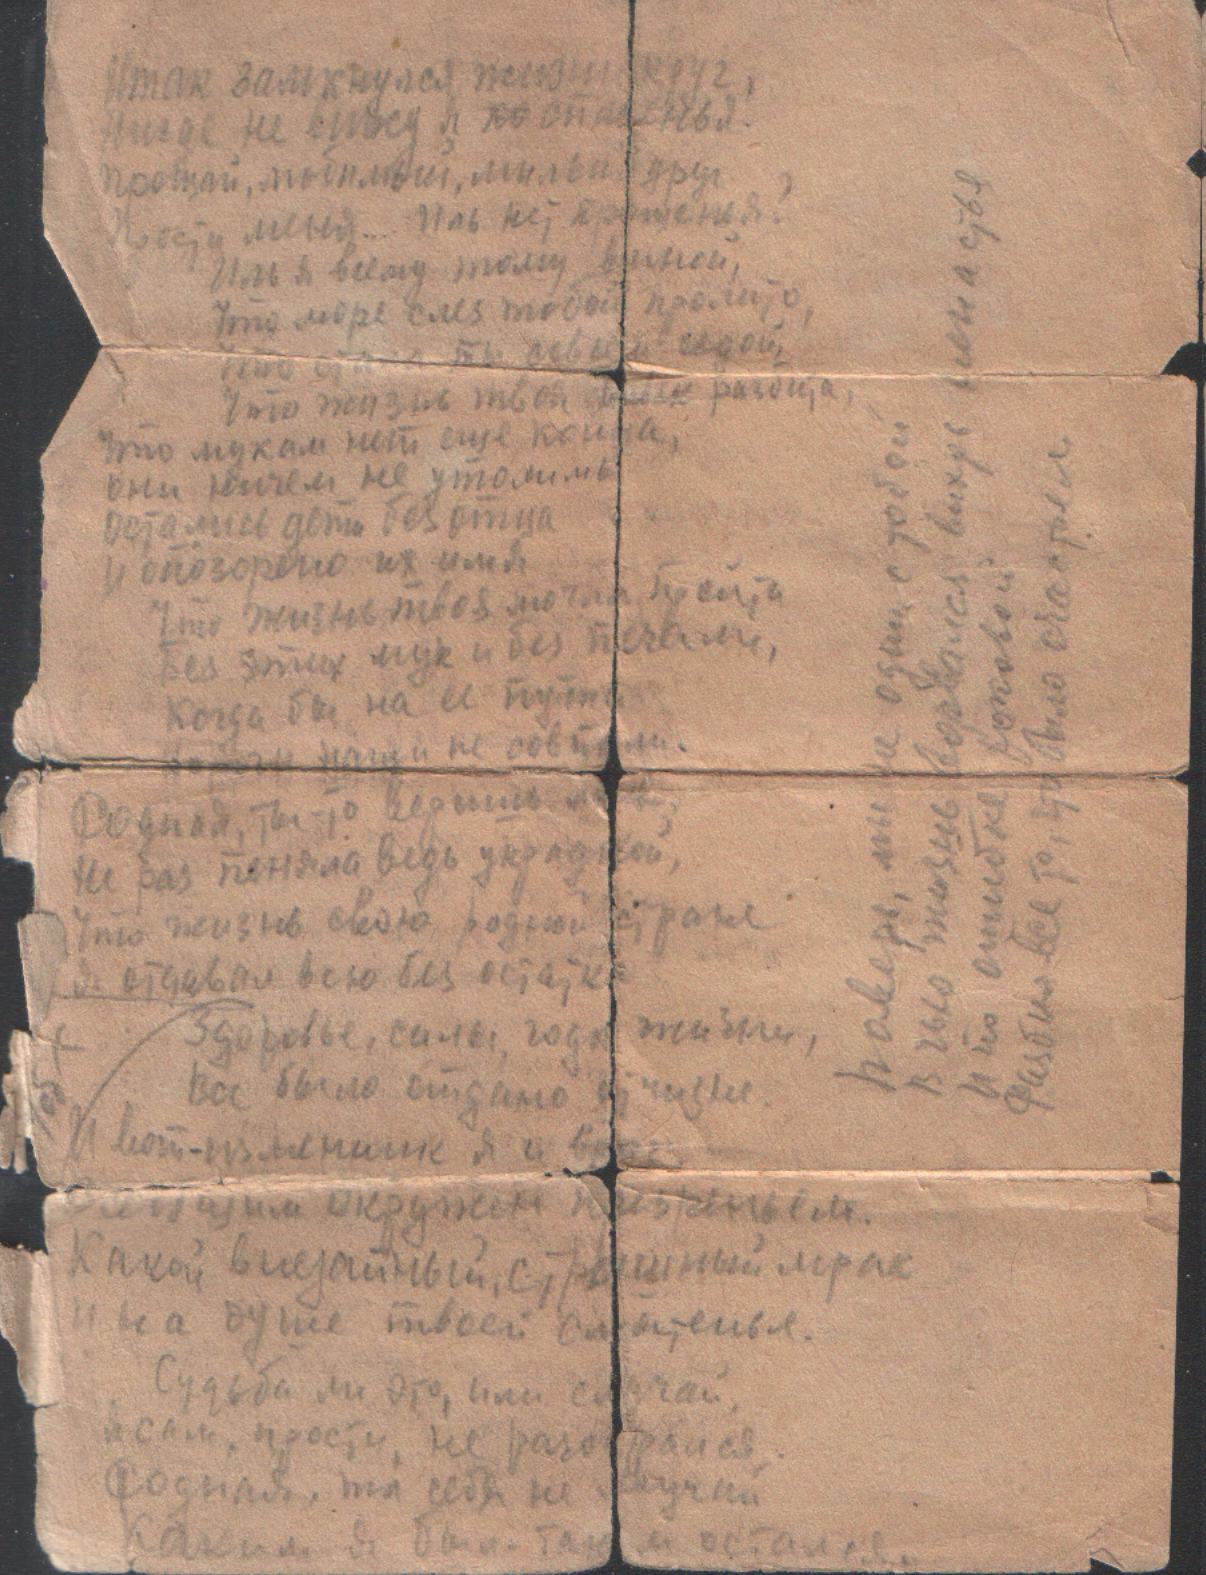 Итак замкнулся жизни круг,
Нигде не вижу я спасенья.
Прощай, любимый, милый друг
Прости меня... Иль нет прощенья?
Иль я всему тому виной,
Что море слез тобой пролито,
Что стала ты совсем седой,
Что жизнь твоя разбита,
Что мукам нет еще конца,
Они ничем не утолимы
Остались дети без отца
И опозорено их имя
Что жизнь твоя могла пройти
Без этих мук и без печали,
Когда бы на ее пути
наши не совпали.
Родная, ты-то веришь мне,
Не раз пеняла ведь украдкой,
Что жизнь свою родной стране
Я отдавал всю без остатка
Здоровье, силы, годы жизни,
Все было отдано отчизне.
И вот-изменник я и враг,
окружен презреньем.
Какой внезапный, страшный мрак
И на душе твоей смятенья.
Судьба ли это, или случай,
Я сам, прости, не разобрался.
Родная, ты себя не мучай
Каким я был-таким остался.
Поверь, мы не одни с тобой
В чью жизнь ворвался вихрь ненастья
И по ошибке роковой
Разбил все то, что было счастьем.